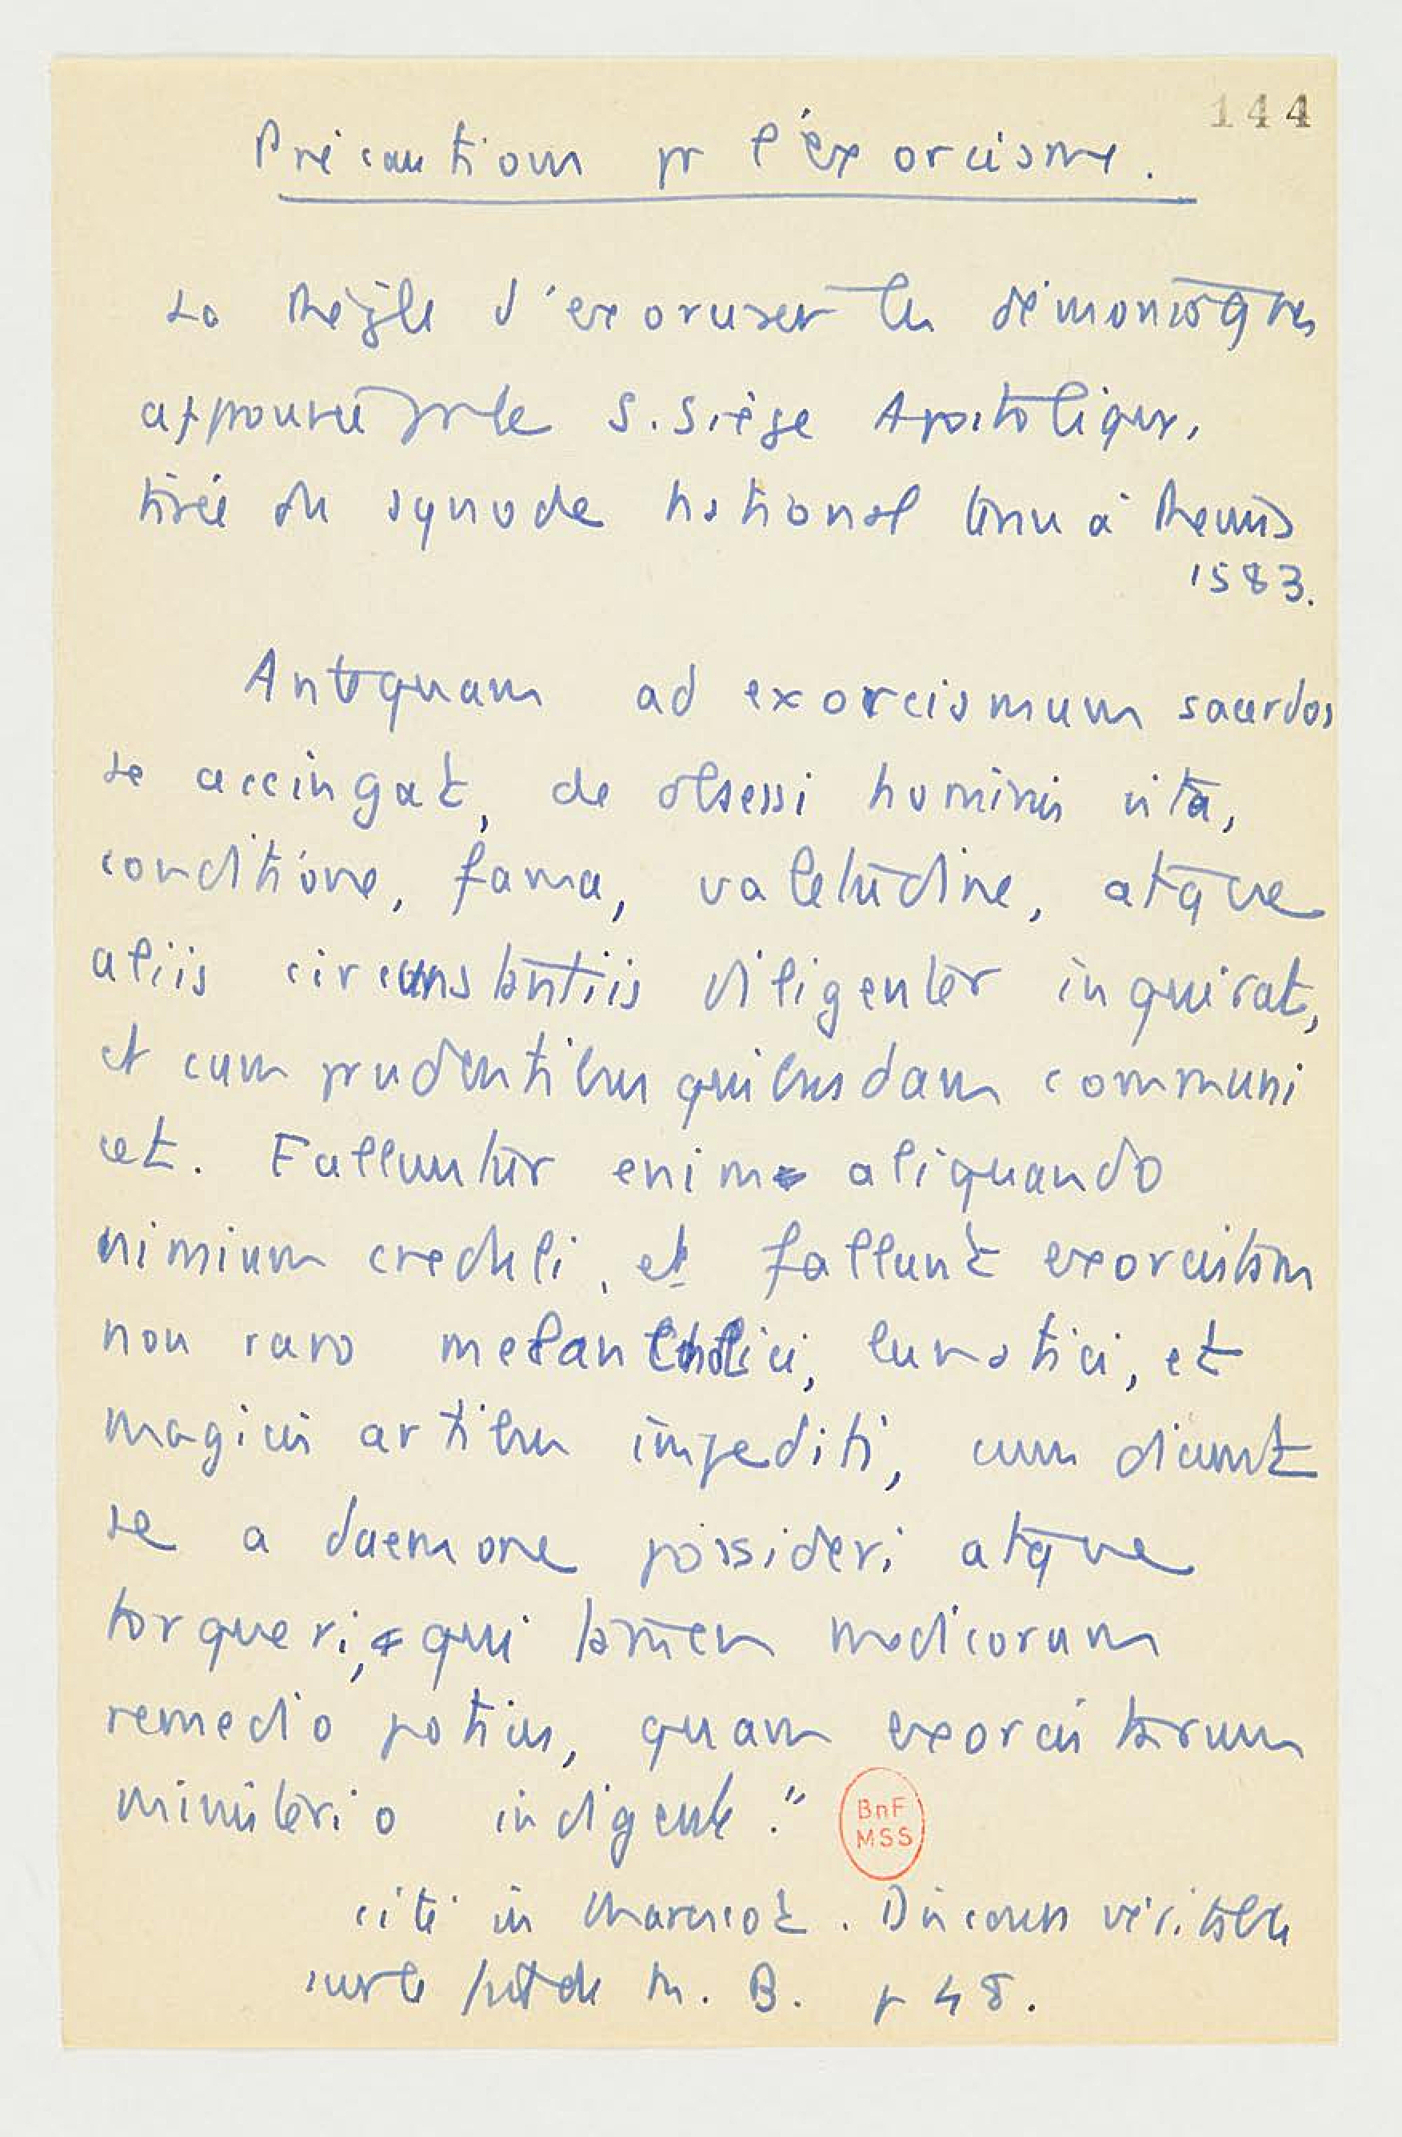 144
Précautions pr l'exorcisme.
La Règle d'exorciser les démoniaques
approuvée par le S. Siège Apostolique,
tirée du synode national tenu à Reims
1583.
Antequam ad exorcismum sacerdos
se accingat, de obsessi hominis vita,
conditione, fama, valetudine, atque
aliis circumstantiis diligenter inquirat,
et cum prudentibus quibusdam communi
cet. Falluntur enim aliquando
nimium creduli, et fallunt exorcistam
non raro melancholici, lunatici, et
magicis artibus impediti, cum dicunt
se a daemone possideri atque
torqueri, qui tamen medicorum
remedio potius, quam exorcistarum
ministerio indigent."
BnF
MSS
cité in Marescot. Discours véritable
sur le fait de M. B. p 48.